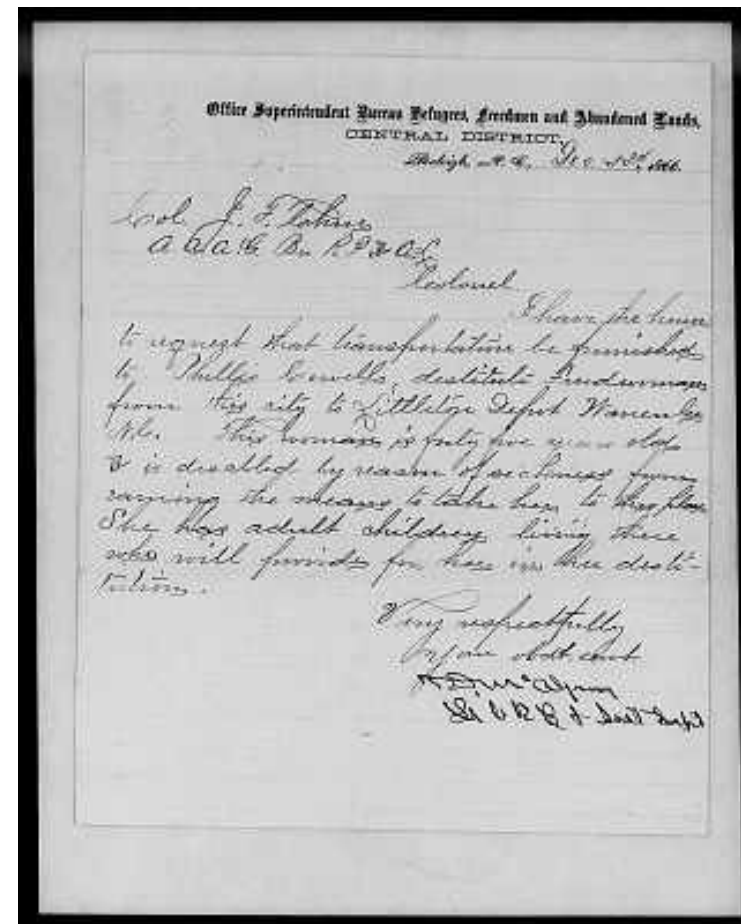 Office Superintendent Bureau Refugees, Freedmen and Abandoned Lands,
CENTRAL DISTRICT,
Raleigh, N. C., Dec 1866.
Col. J. F.
A. A. A. G. Bu R F & A L
Colonel
I have the honor
to request that transportation be furnished
to Phillis destitute freedwoman
from this city to Littleton Depot Warren Co
N.C. This woman is forty five years old
& is disabled by reason of sickness from
earning the means to take her to that place
She has adult children living there
who will provide for her in her desti-
tution.
Very respectfully
Your obdt servt